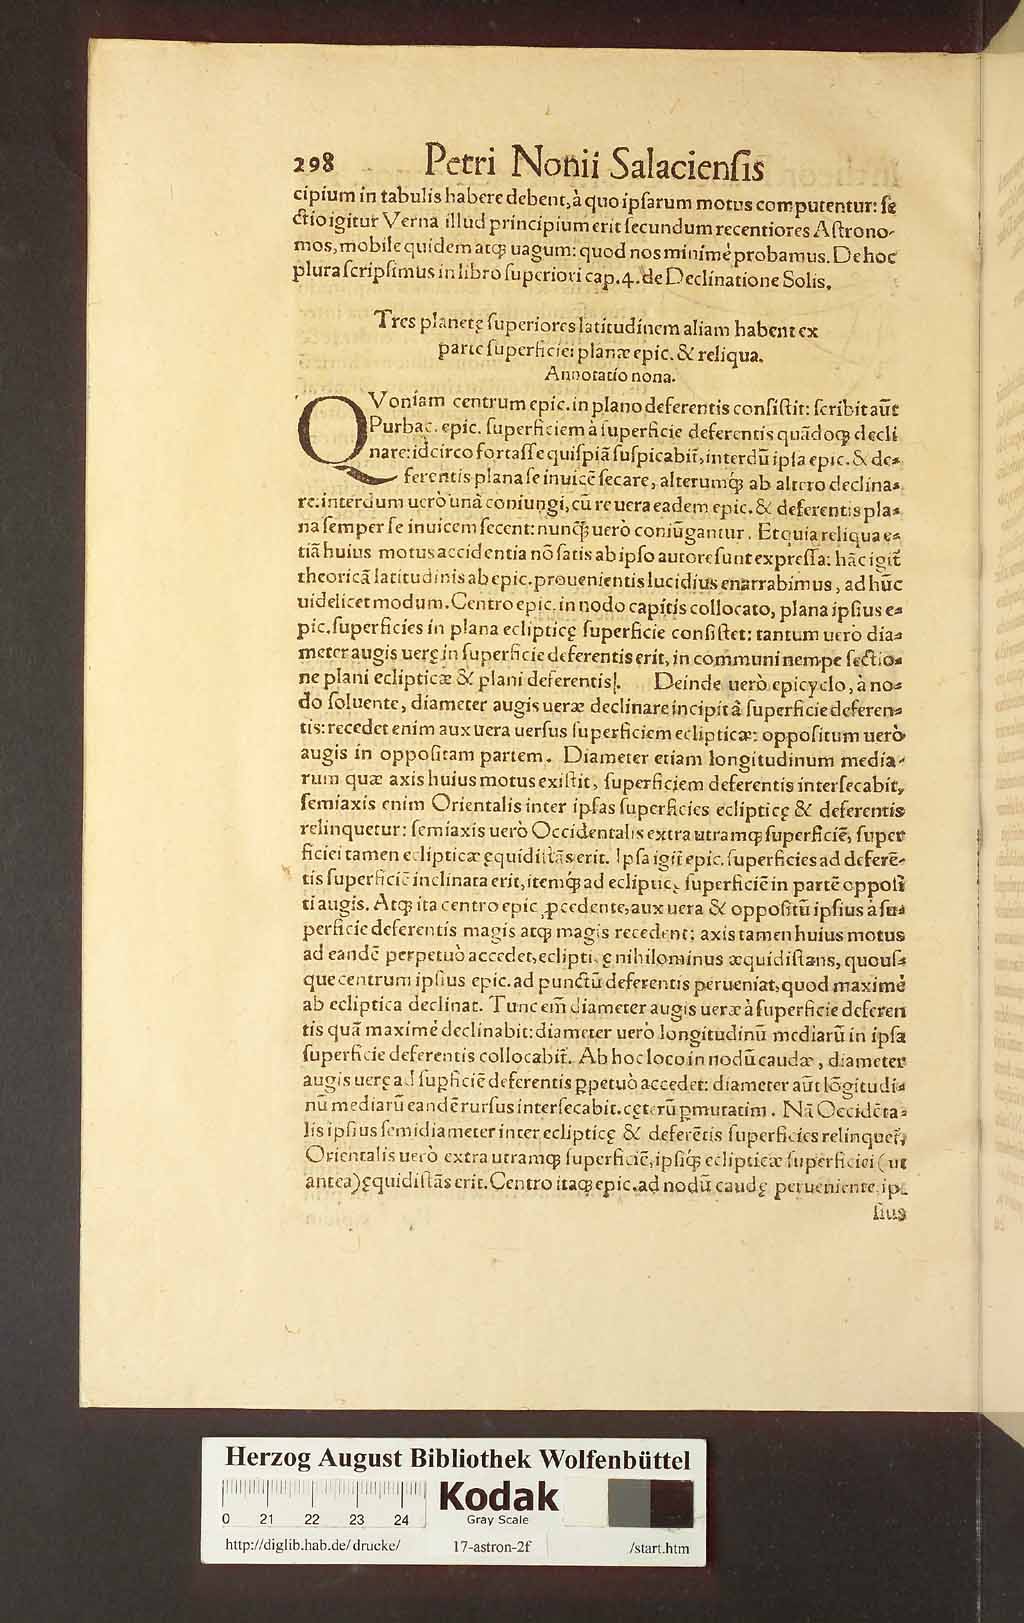 298 Petri Nonii Salaciensis
cipium in tabulis habere debent, à quo ipsarum motus computentur: se
ctio igitur Verna illud principium erit secundum recentiores Astrono-
mos, mobile quidem atq; uagum: quod nos minimè probamus. De hoc
plura scripsimus in libro superiori cap. 4. de Declinatione Solis.
Tres planetę superiores latitudinem aliam habent ex
parte superficiei planæ epic. & reliqua.
Annotatio nona.
QVoniam centrum epic. in plano deferentis consistit: scribit aūt
Purbac. epic. superficiem à superficie deferentis quādoq; decli
nare: idcirco fortasse quispiā suspicabit̃, interdū ipsa epic. & de-
ferentis plana se inuicē secare, alterumq́; ab altero declina-
re: interdum uerò unà coniungi, cū re uera eadem epic. & deferentis pla-
na semper se inuicem secent: nunq̃; uerò coniūgantur. Et quia reliqua e-
tiā huius motus accidentia nō satis ab ipso autore sunt expressa: hāc igit̃
theoricā latitudinis ab epic. prouenientis lucidius enarrabimus, ad hūc
uidelicet modum. Centro epic. in nodo capitis collocato, plana ipsius e-
pic. superficies in plana eclipticę superficie consistet: tantum uerò dia-
meter augis uerę in superficie deferentis erit, in communi nempe sectio-
ne plani eclipticæ & plani deferentis|. Deinde uerò epicyclo, à no-
do soluente, diameter augis ueræ declinare incipit à superficie deferen-
tis: recedet enim aux uera uersus superficiem eclipticæ: oppositum uerò
augis in oppositam partem. Diameter etiam longitudinum media-
rum quæ axis huius motus existit, superficiem deferentis intersecabit,
semiaxis enim Orientalis inter ipsas superficies eclipticę & deferentis
relinquetur: semiaxis uerò Occidentalis extra utramq; superficiē, super
ficiei tamen eclipticæ ęquidistās erit. Ipsa igit̃ epic. superficies ad deferē-
tis superficiē inclinata erit, itemq́; ad eclipticę superficiē in partē opposi
ti augis. Atq; ita centro epic. ꝓcedente, aux uera & oppositū ipsius à su-
perficie deferentis magis atq; magis recedent: axis tamen huius motus
ad eandē perpetuò accedet, eclipticę nihilominus æquidistans, quous-
que centrum ipsius epic. ad punctū deferentis perueniat, quod maximè
ab ecliptica declinat. Tunc em̄ diameter augis ueræ à superficie deferen
tis quā maximè declinabit: diameter uerò longitudinū mediarū in ipsa
superficie deferentis collocabit̃. Ab hoc loco in nodū caudæ, diameter
augis uerę ad sup̱ficiē deferentis p̱petuò accedet: diameter aūt lōgitudi-
nū mediarū eandē rursus intersecabit. cęterū p̱mutatim. Nā Occidēta-
lis ipsius semidiameter inter eclipticę & deferētis superficies relinquet̃,
Orientalis uerò extra utramq; superficiē, ipsiq́; eclipticæ superficiei (ut
antea) ęquidistās erit. Centro itaq; epic. ad nodū caudę perueniente, ip-
sius
Herzog August Bibliothek Wolfenbüttel
0 21 22 23 24
Kodak
Gray Scale
http://diglib.hab.de/drucke/ 17-astron-2f /start.htm